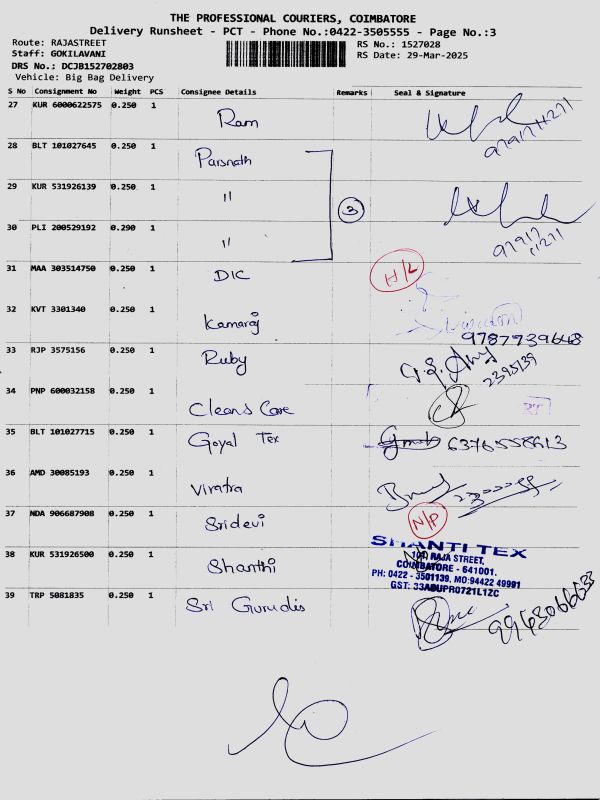 THE PROFESSIONAL COURIERS, COIMBATORE
Delivery Runsheet - PCT - Phone No.:0422-3505555 - Page No.:3
Route: RAJASTREET
Staff: GOKILAVANI
DRS No.: DCJB152702803
Vehicle: Big Bag Delivery
RS No.: 1527028
RS Date: 29-Mar-2025
S No Consignment No Weight PCS Consignee Details Remarks Seal & Signature
27 KUR 6000622575 0.250 1 Ram
28 BLT 101027645 0.250 1 Parsnath
29 KUR 531926139 0.250 1 " 3
30 PLI 200529192 0.290 1 "
31 MAA 303514750 0.250 1 DIC H/L
32 KVT 3301340 0.250 1 Kamaraj 9787739648
33 RJP 3575156 0.250 1 Ruby 2395139
34 PNP 600032158 0.250 1 Cleans Care
35 BLT 101027715 0.250 1 Goyal Tex 6376558613
36 AMD 30085193 0.250 1 Viratra
37 NDA 906687908 0.250 1 Sridevi N/P
38 KUR 531926500 0.250 1 Shanthi
SHANTI TEX
RAJA STREET,
COIMBATORE - 641001.
PH: 0422 - 3501139, MO:94422 49991
GST: 33ABUPR0721L1ZC
39 TRP 5081835 0.250 1 Sri Gurudis